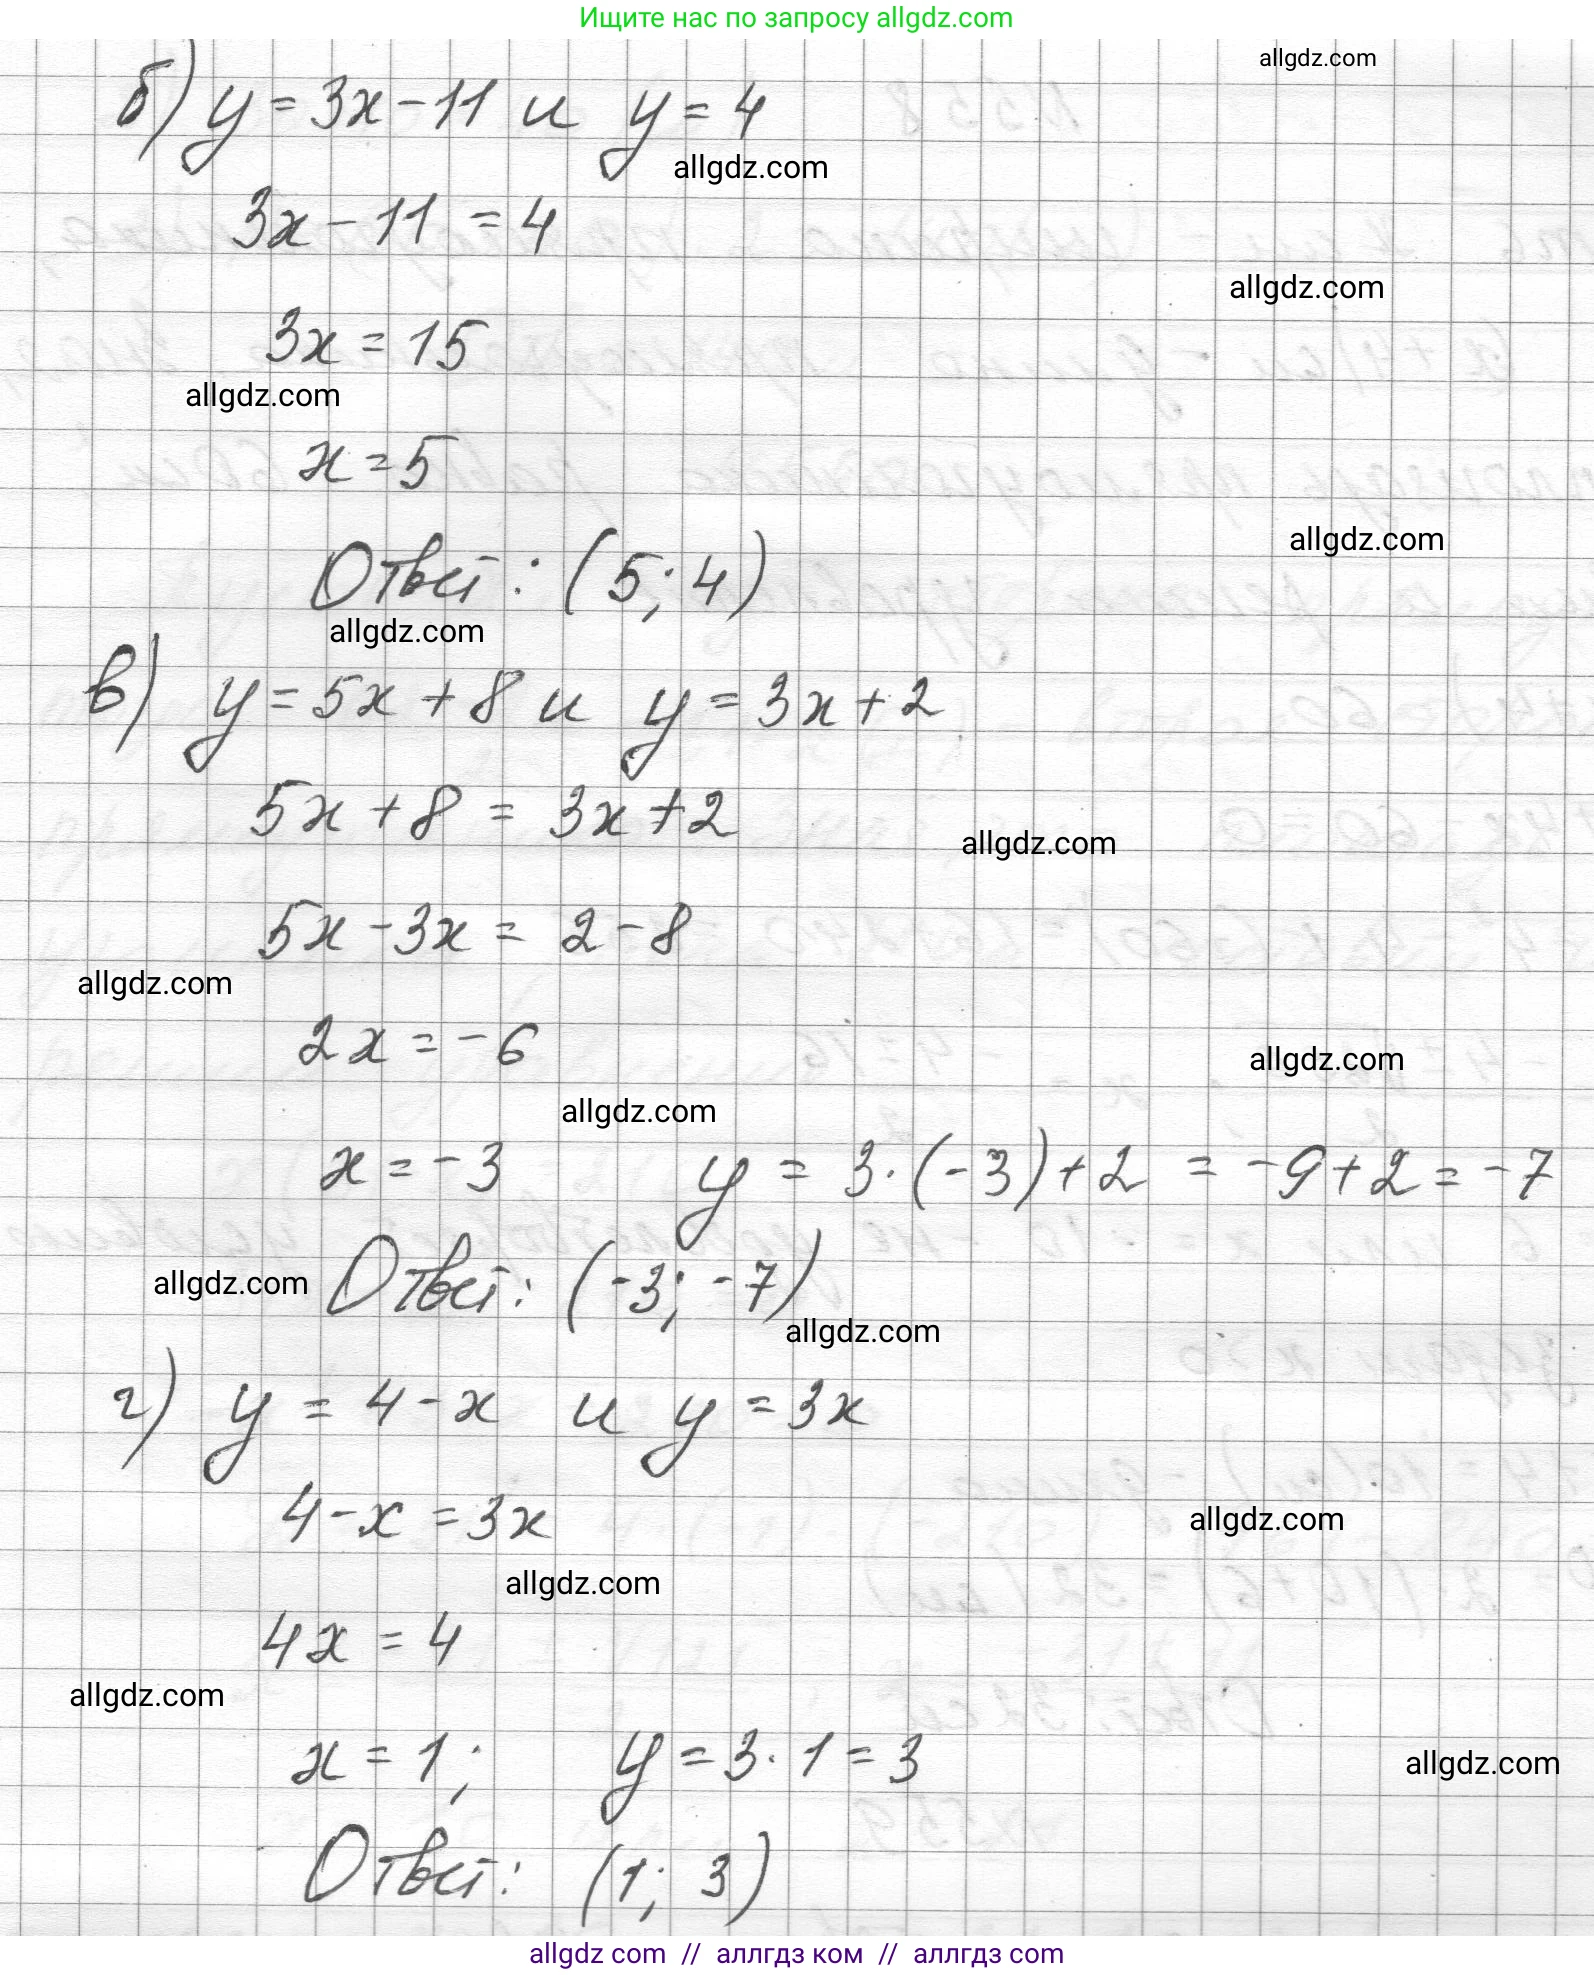 Ищите нас по запросу allgdz.com
allgdz.com
б) y = 3x - 11 и y = 4
allgdz.com
3x - 11 = 4
allgdz.com
3x = 15
allgdz.com
x = 5
allgdz.com
Ответ: (5; 4)
allgdz.com
в) y = 5x + 8 и y = 3x + 2
5x + 8 = 3x + 2
allgdz.com
5x - 3x = 2 - 8
allgdz.com
2x = -6
allgdz.com
allgdz.com
x = -3 y = 3 · (-3) + 2 = -9 + 2 = -7
allgdz.com
Ответ: (-3; -7)
allgdz.com
г) y = 4 - x и y = 3x
4 - x = 3x
allgdz.com
allgdz.com
4x = 4
allgdz.com
x = 1; y = 3 · 1 = 3
allgdz.com
Ответ: (1; 3)
allgdz.com // аллгдз ком // аллгдз com